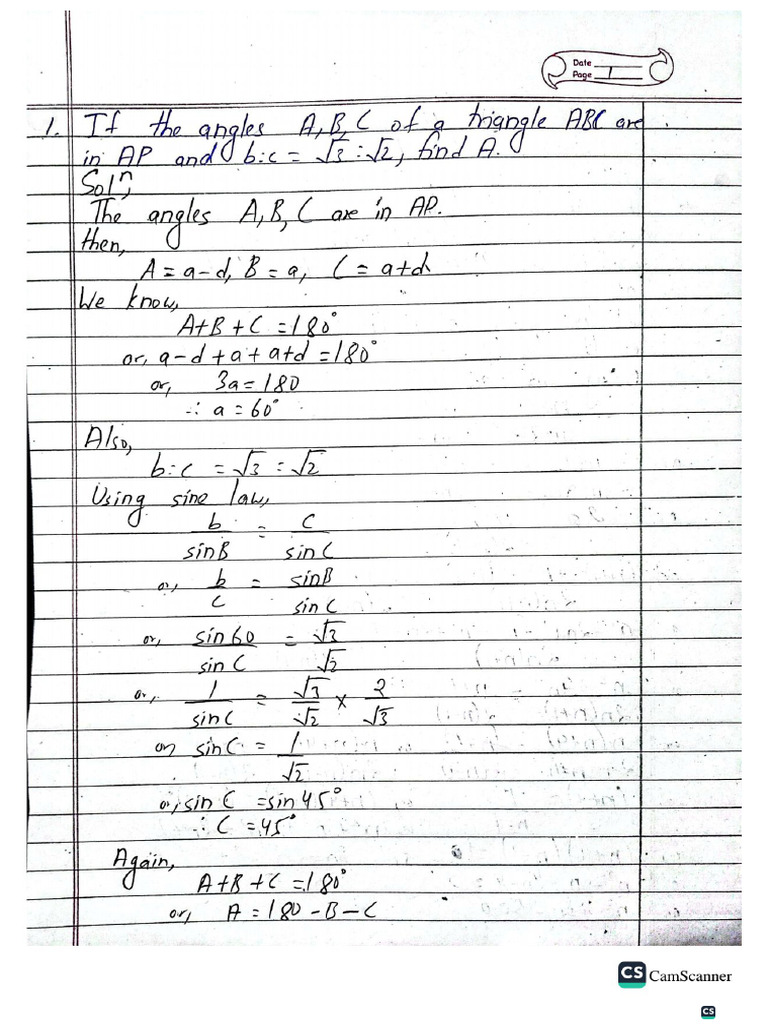 Date
Page 1
1. If the angles A, B, C of a triangle ABC are
in AP and b:c = √3:√2, find A.
Solⁿ,
The angles A, B, C are in AP.
then,
A = a-d, B = a, C = a+d
We know,
A+B+C = 180°
or, a-d+a+a+d = 180°
or, 3a = 180
∴ a = 60°
Also,
b:c = √3 : √2
Using sine law,
b/sinB = c/sinC
or, b/c = sinB/sinC
or, sin60/sinC = √3/√2
or, 1/sinC = √3/√2 × 2/√3
or, sinC = 1/√2
or, sinC = sin45°
∴ C = 45°
Again,
A+B+C = 180°
or, A = 180-B-C
CS CamScanner
CS